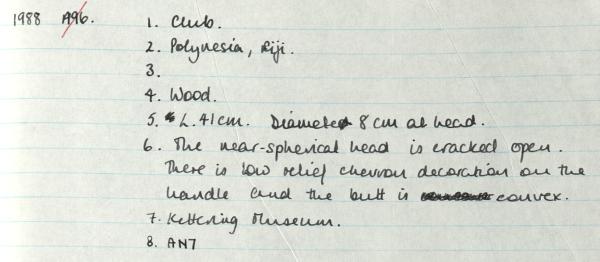 1988 A96. 1. Club.
2. Polynesia, Fiji.
3.
4. Wood.
5. L. 41cm. Diameter 8cm at head.
6. The near-spherical head is cracked open.
There is low relief chevron decoration on the
handle and the butt is convex.
7. Kettering Museum.
8. AN7